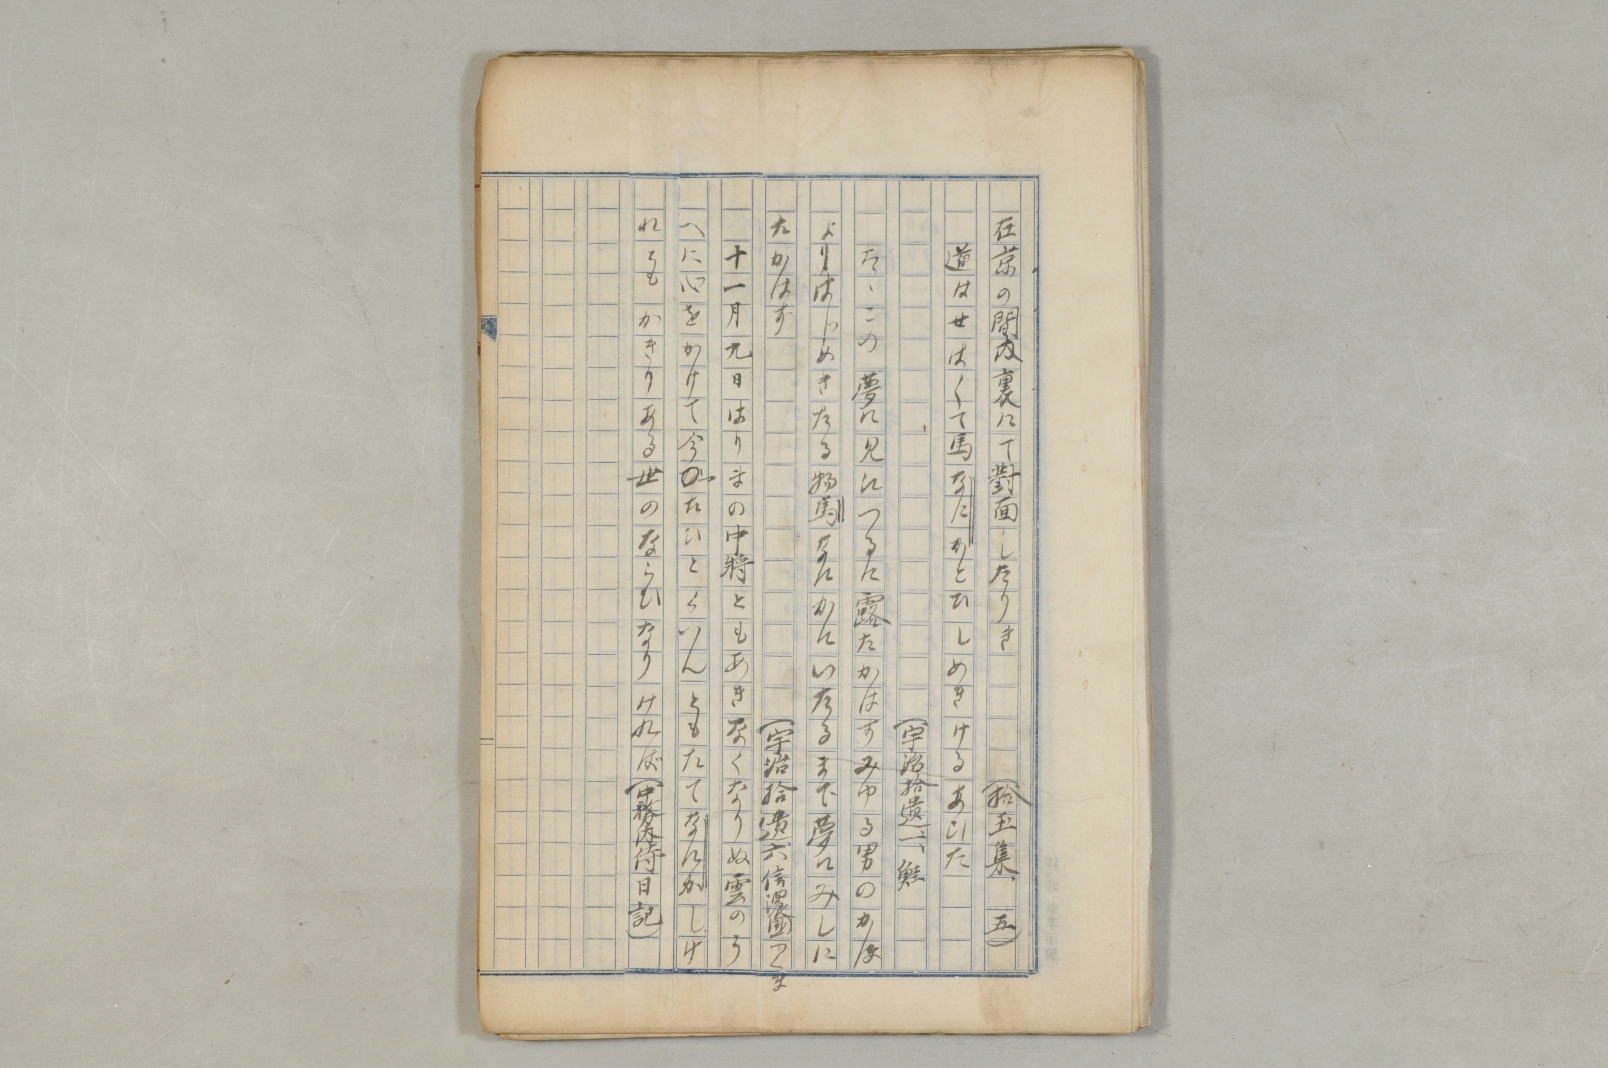 在京の間内裏にて對面したりき (拾玉集、五)
道はせはくて馬なにかとひしめきけるあひた
(宇治拾遺一、鮭)
たゝこの夢に見いつるに露たかはすみゆる男のかほ
よりはじめきたる物馬なにかにいたるまで夢にみしに
たかはず (宇治拾遺六信濃國つくま
十一月九日はりまの中将ともあきなくなりぬ雲のう
へに心をかけて今がたひとくいんともたてなにかしけ
れともかきりある世のならひなりければ (中務内侍日記)